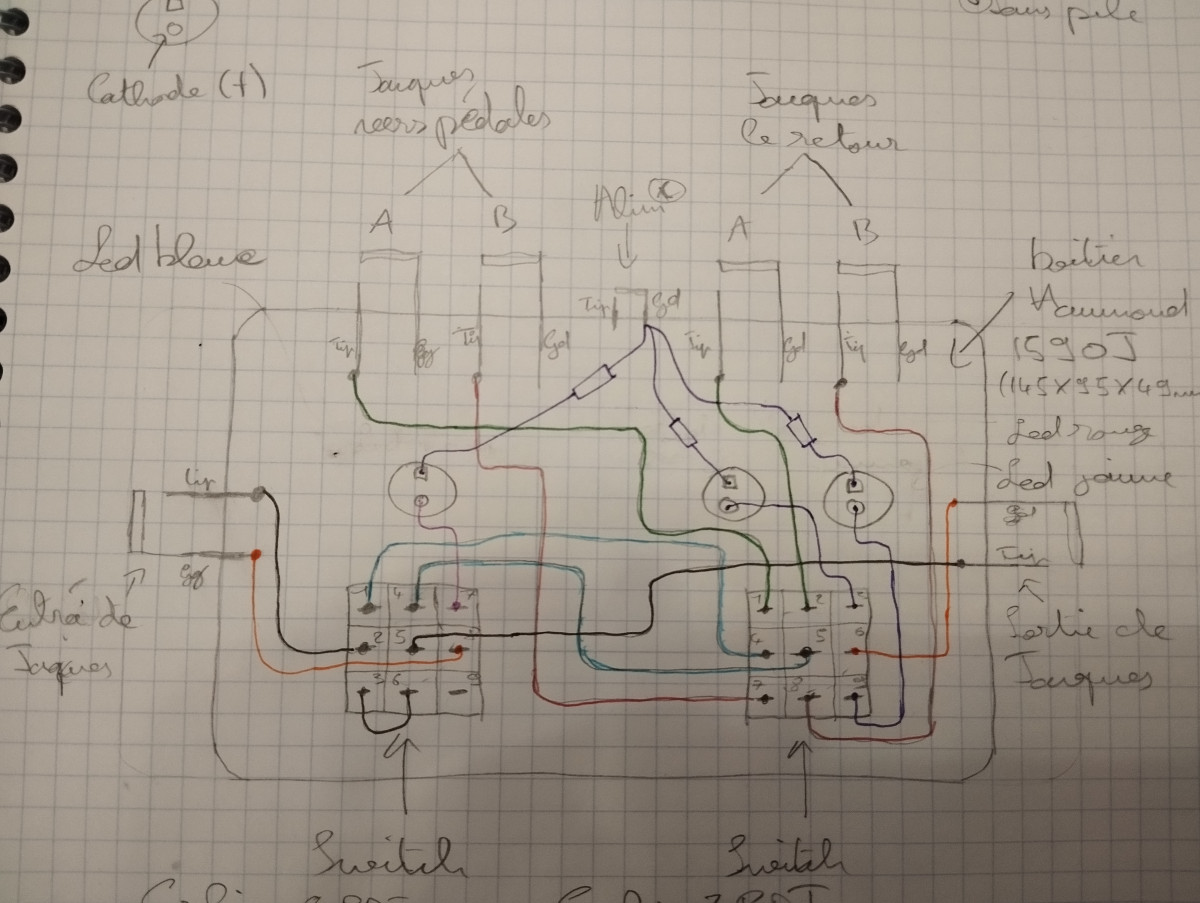 sans pile
Cathode (+)
Jacques
vers pédales
Jacques
le retour
A
B
Alim
A
B
Led bleue
Boîtier
Hammond
1590J
(145x95x49mm
Led rouge
Led jaune
Tip
Gd
Tip
Gd
Tip
Gd
Tip
Gd
Tip
Gd
Tip
Gd
Gd
Tip
Entré de
Jacques
Sortie de
Jacques
1 4 7
2 5 8
3 6 9
1 2 3
4 5 6
7 8 9
Switch
Switch